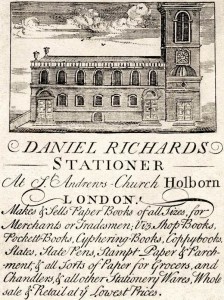 DANIEL RICHARDS
STATIONER
At St. Andrews-Church Holborn
LONDON.
Makes & Sells Paper Books of all Sizes, for
Merchants or Tradesmen; Viz. Shop Books,
Pockett-Books, Cyphering-Books, Coppybooks,
Slates, Slate Pens, Stampt Paper & Parch-
ment, & all Sorts of Paper for Grocers, and
Chandlers, & all other Stationery Wares, Whole
sale & Retail at ye Lowest Prices.